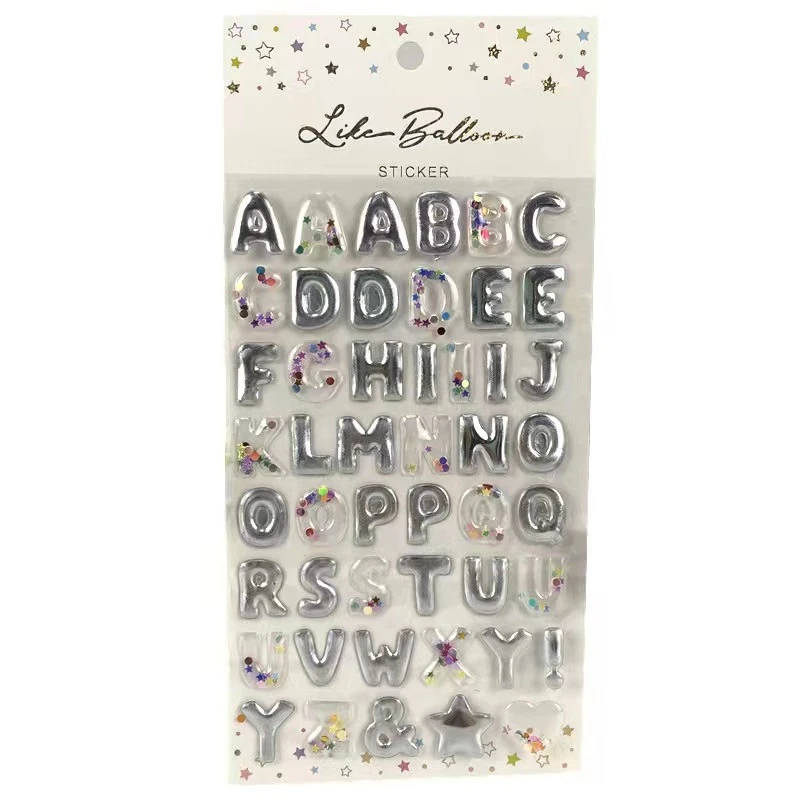 Like Balloon
STICKER
A A A B B C
C D D D E E
F G H I I I J
K L M N N O
O O P P Q Q
R S S T U U
U V W X Y !
Y Z &